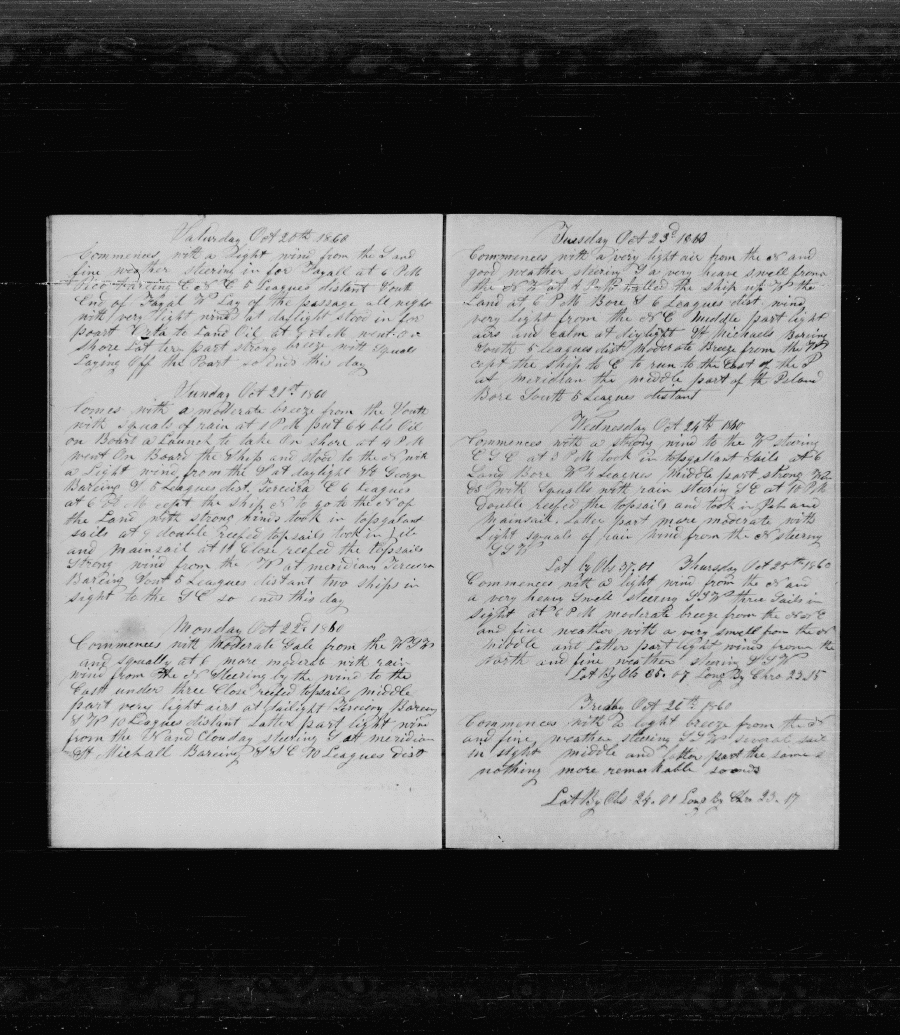 Saturday Oct 20th 1860
Commences with a light wind from the S and
fine weather steering in for Fayall at 6 PM
Pico Bareing E N E 5 Leagues distant South
End of Fayal W Lay of the passage all night
with very light wind at daylight stood in for
poart to Land Oil at 9 A M went on
shore Latter part strong breeze with squals
Laying Off the Poart so Ends this day
Sunday Oct 21st 1860
Comes with a moderate breeze from the South
with squals of rain at 1 PM put 64 bls Oil
on Boart a Launch to take On shore at 4 PM
went On Board the Ship and stood to the N with
a Light wind from the S at daylight St George
Bareing S 5 Leagues dist. Terceira E 6 leagues
at 6 A M cept the ship N to go to the N of
the Land with strong winds took in topgalant
sails at 9 double reefed topsails took in Jib
and mainsail at 11 Close reefed the topsails
Strong wind from the W at meridian Terceira
Bareing Sout 5 Leagues distant two ships in
sight to the S E so ends this day
Monday Oct 22d 1860
Commences with Moderate Gale from the W S W
and squally at 6 more moderate with rain
wind from the N Steering by the wind to the
East under three Close reefed topsails middle
part very light airs at dailight Bareing
S W 10 Leagues distant Latter part light wind
from the W and Clouday steering S at meridian
St Michall Bareing S S E 10 Leagues Dist
Tuesday Oct 23d 1860
Commences with a very light air from the N and
good weather steering S a very heave swell from
the N W at 4 PM the ship up W the
Land at 6 PM Bore S 6 Leagues dist wind
very light from the N E Middle part light
airs and calm at daylight St Michaels Bareing
South 5 leagues dist Moderate Breeze from the W
cept the ship to E to run to the East of the
at meridian the middle part of the Island
Bore South 5 Leagues distant
Wednesday Oct 24th 1860
Commences with a strong wind to the W Stering
E S E at 3 PM took in topgallant Sails at 6
Land Bore W 4 Leagues Middle part strong
with squalls with rain steering S E at 10 PM
Double reefed the topsails and took in Jib and
Mainsail Latter part more moderate with
Light squals of rain wind from the N steering
S S W
Lat by Obs 37,01 Thursday Oct 25th 1860
Commences with a light wind from the N and
a very heavy Swell steering S S W three Sails in
sight at 6 PM moderate breeze from the N N E
and fine weather with a very smell from the N
Middle and Latter part light winds from the
North and fine weather steering S S W
Lat By Ob 35.17 Long By Chro 23.15
Friday Oct 26th 1860
Commences with a light breeze from the N
and fine weather steering S S W several sail
in sight middle and latter part the same
nothing more remarkable so ends
Lat By Obs 34.01 Long By Chro 23.17